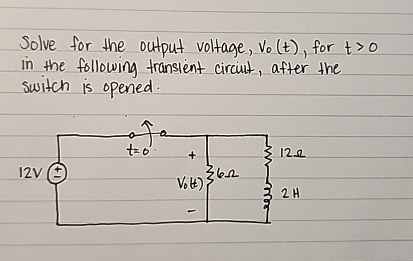 Solve for the output voltage, Vo(t), for t>0
in the following transient circuit, after the
switch is opened.
t=0
12V
+
-
+
Vo(t)
-
6Ω
12Ω
2H